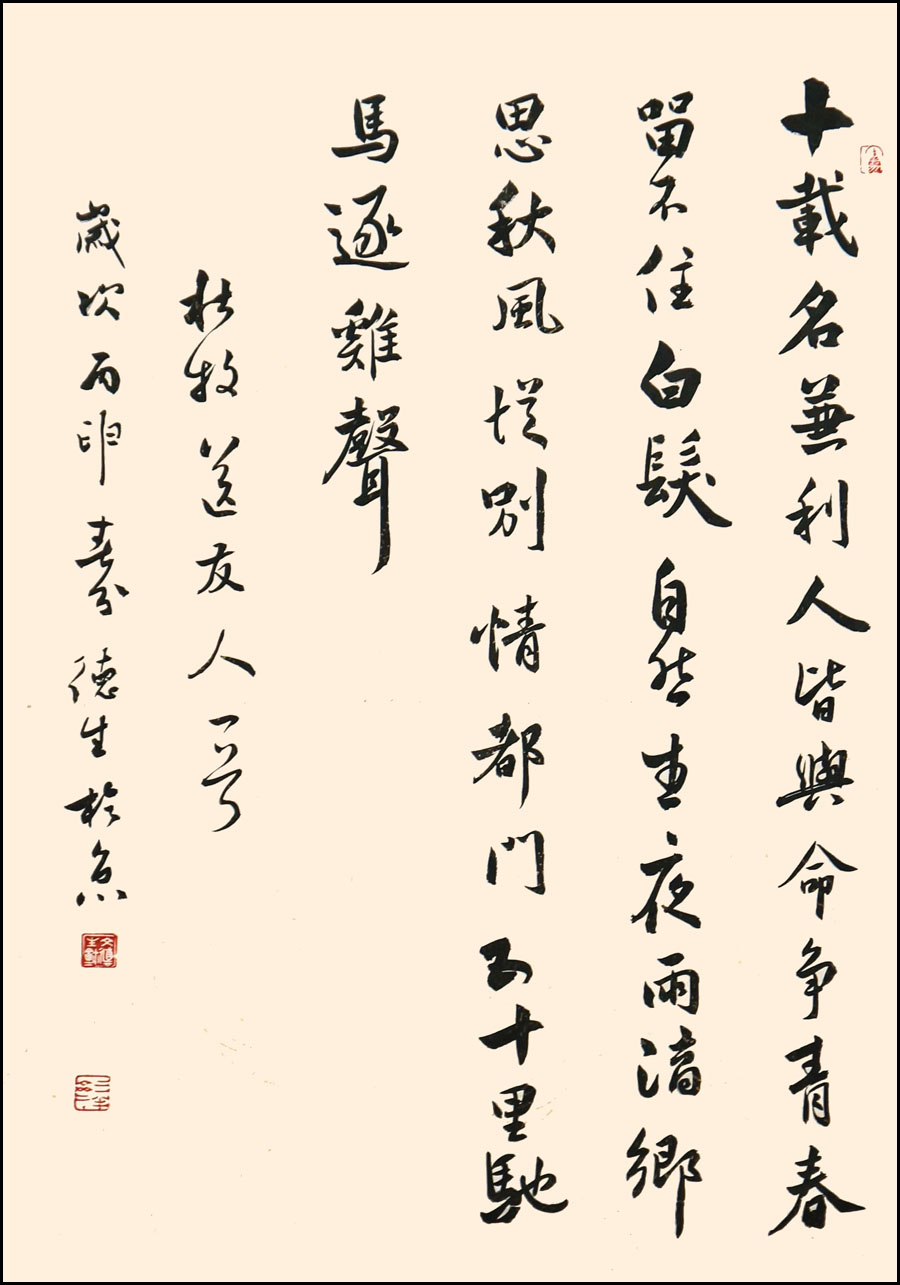 十載名兼利人皆與命争青春
留不住白髮自然生夜雨滴鄉
思秋風從別情都門五十里馳
馬逐雞聲
杜牧送友人一首
歲次丙申春分德生於京